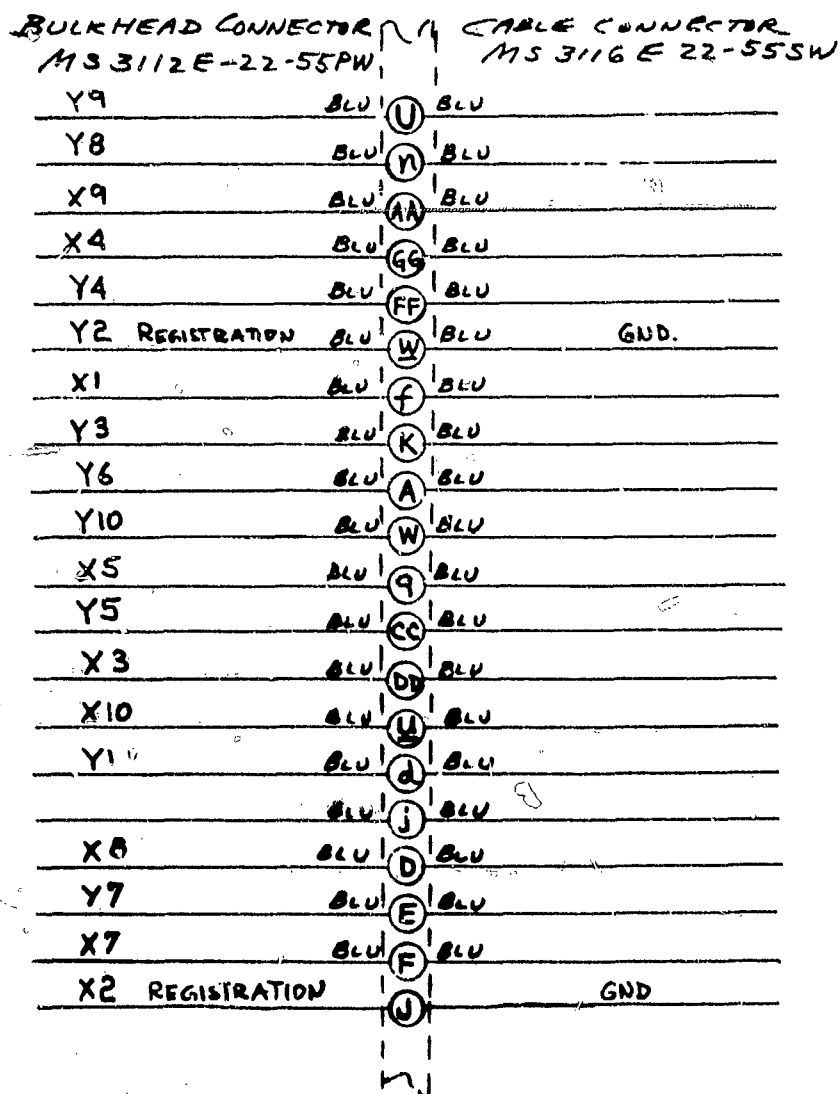 BULKHEAD CONNECTOR CABLE CONNECTOR
MS 3112E-22-55PW MS 3116 E 22-55SW
Y9 BLU U BLU
Y8 BLU n BLU
X9 BLU AA BLU
X4 BLU GG BLU
Y4 BLU FF BLU
Y2 REGISTRATION BLU W BLU GND.
X1 BLU f BLU
Y3 BLU K BLU
Y6 BLU A BLU
Y10 BLU W BLU
X5 BLU q BLU
Y5 BLU CC BLU
X3 BLU DD BLU
X10 BLU U BLU
Y1 BLU d BLU
BLU j BLU
X8 BLU D BLU
Y7 BLU E BLU
X7 BLU F BLU
X2 REGISTRATION J GND